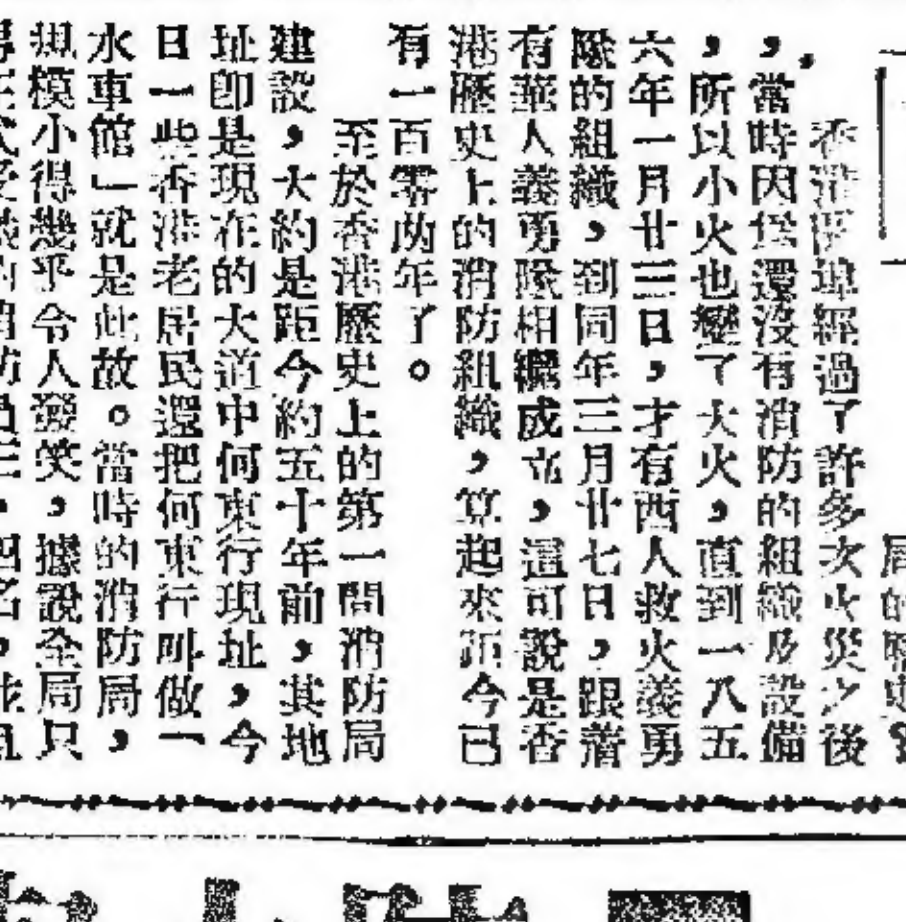 局的歷史?
香港開埠經過了許多次火災之後
，當時因為還沒有消防的組織及設備
，所以小火也變了大火，直到一八五
六年一月廿三日，才有西人救火義勇
隊的組織，到同年三月廿七日，跟著
有華人義勇隊相繼成立，這可說是香
港歷史上的消防組織，算起來距今已
有一百零两年了。
至於香港歷史上的第一間消防局
建設，大約是距今約五十年前，其地
址卽是現在的大道中何東行現址，今
日一些香港老居民還把何東行叫做「
水車館」就是此故。當時的消防局，
規模小得幾乎令人發笑，據說全局只